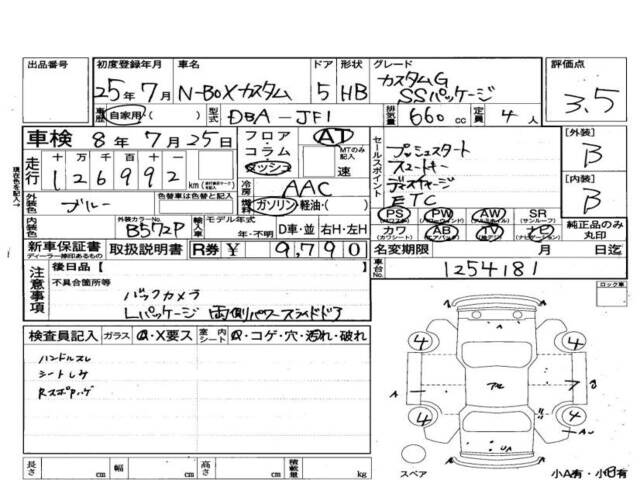 出品番号
初度登録年月
25年7月
車名
N-BOXカスタム
ドア
5
形状
HB
グレード
カスタムG
SSパッケージ
評価点
3.5
車歴
自家用( )
型式
DBA-JF1
排気量
660cc
定員
4人
車検 8年7月25日
フロア・コラム・ダッシュ
AT
MTのみ記入
速
セールスポイント
プッシュスタート
スマートキー
ETC
[外装]
B
[内装]
B
走行
十 万 千 百 十 一
126992
km
現在色を記入→
外装色
ブルー
色替車は色替と記入
冷房
AAC
燃料
ガソリン・軽油・( )
PS PW AW SR
カワ AB TV ナビ
(カワシート)
(サンルーフ)
純正品のみ丸印
内装色
外装カラーNo.
B572P
輸入車
モデル年式
年・不明
D車・並
右H・左H
新車保証書
ディーラー捺印あるもの
取扱説明書
R券 ¥ 9,790
名変期限 月 日迄
車台No.
1254181
注意事項
後日品【 】
不具合箇所等
バックカメラ
Lパッケージ 両側パワースライドドア
ロック車
検査員記入
ガラス
・X要ス
室内シート
・コゲ・穴・汚れ・破れ
ハンドルスレ
4 4
A
4 4
長さ cm 幅 cm 高さ cm 積載量 kg
スペア
小A有・小B有